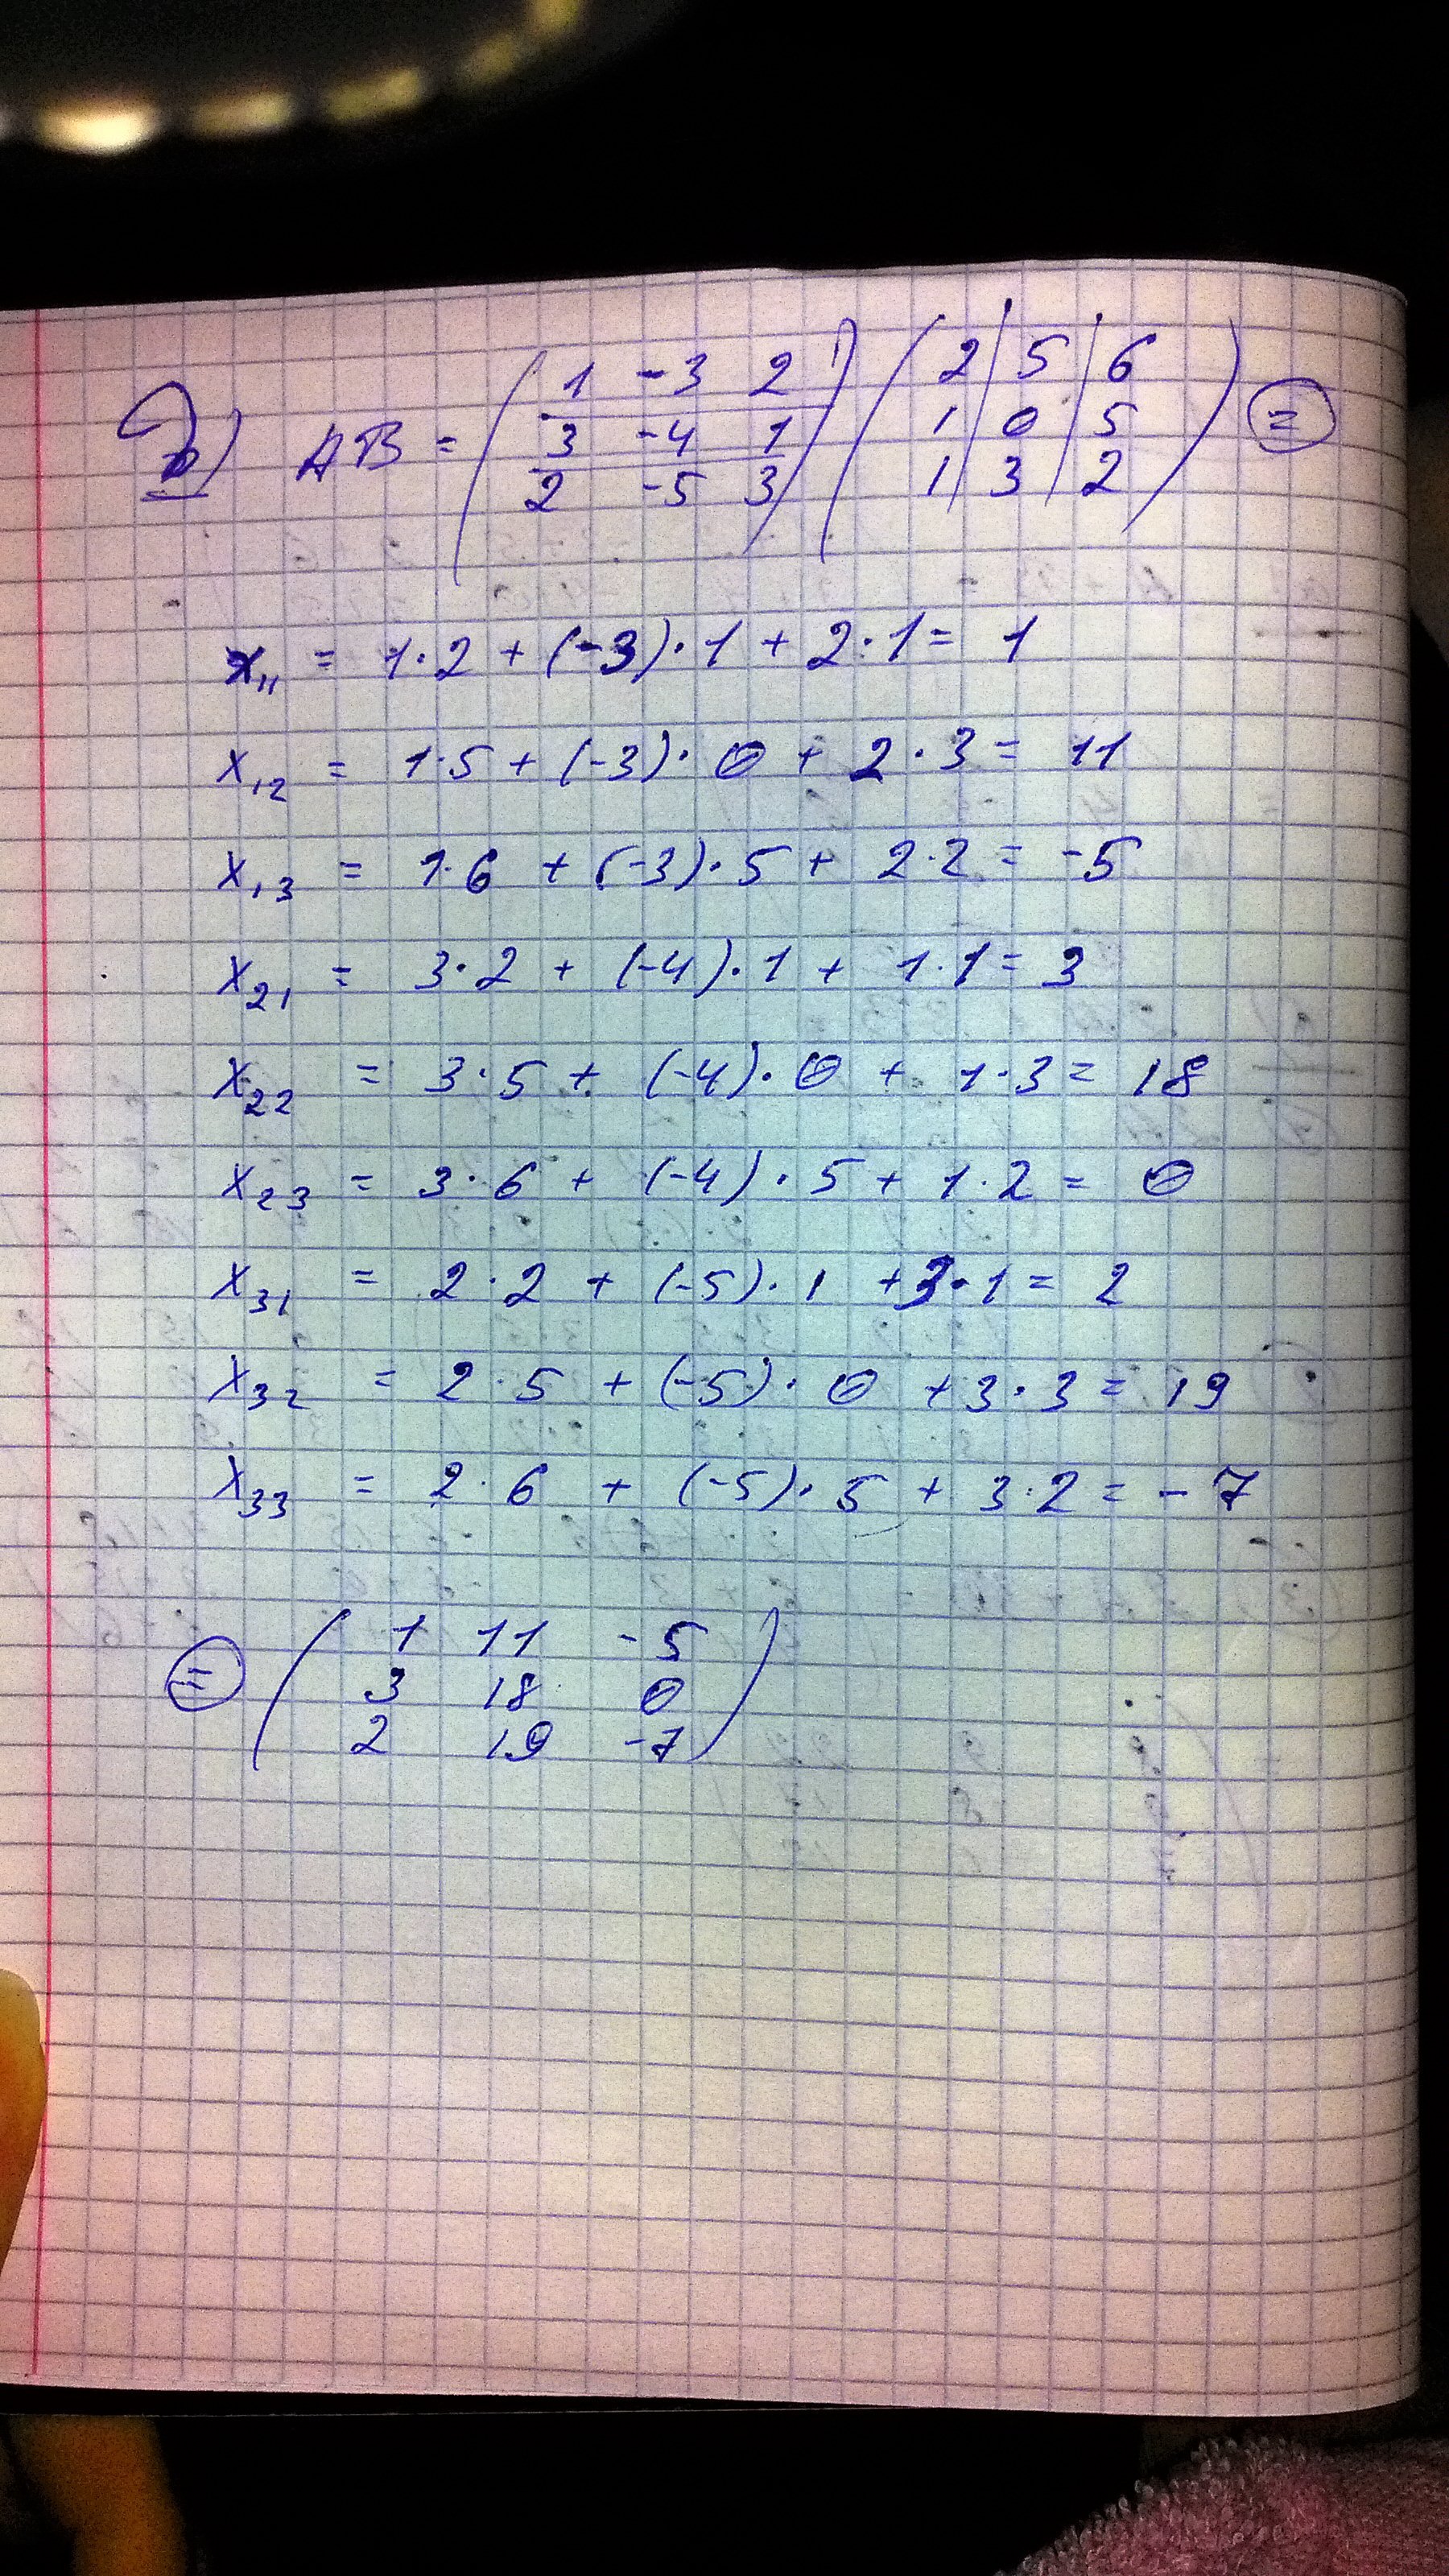 b) AB = ( 1 -3 2 ) ( 2 | 5 | 6 ) =
3 -4 1 1 | 0 | 5
2 -5 3 1 | 3 | 2
x₁₁ = 1·2 + (-3)·1 + 2·1 = 1
x₁₂ = 1·5 + (-3)·0 + 2·3 = 11
x₁₃ = 1·6 + (-3)·5 + 2·2 = -5
x₂₁ = 3·2 + (-4)·1 + 1·1 = 3
x₂₂ = 3·5 + (-4)·0 + 1·3 = 18
x₂₃ = 3·6 + (-4)·5 + 1·2 = 0
x₃₁ = 2·2 + (-5)·1 + 3·1 = 2
x₃₂ = 2·5 + (-5)·0 + 3·3 = 19
x₃₃ = 2·6 + (-5)·5 + 3·2 = -7
= ( 1 11 -5 )
3 18 0
2 19 -7